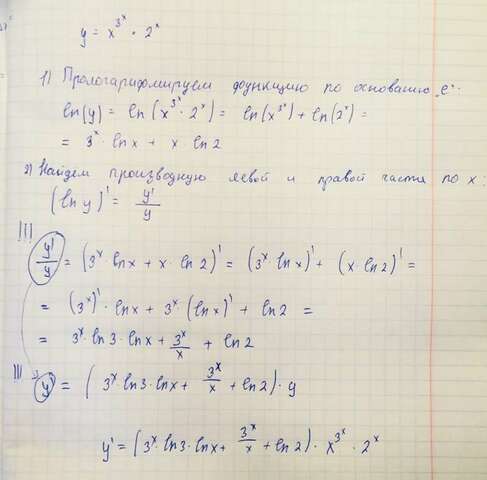 y = x^{3^x} · 2^x
1) Прологарифмируем функцию по основанию „e“:
ln(y) = ln(x^{3^x} · 2^x) = ln(x^{3^x}) + ln(2^x) =
= 3^x · ln x + x · ln 2
2) Найдём производную левой и правой части по x:
(ln y)' = y'/y
!!!
y'/y = (3^x · ln x + x · ln 2)' = (3^x · ln x)' + (x · ln 2)' =
= (3^x)' · ln x + 3^x · (ln x)' + ln 2 =
= 3^x · ln 3 · ln x + 3^x/x + ln 2
!!! y' = (3^x · ln 3 · ln x + 3^x/x + ln 2) · y
y' = (3^x · ln 3 · ln x + 3^x/x + ln 2) · x^{3^x} · 2^x